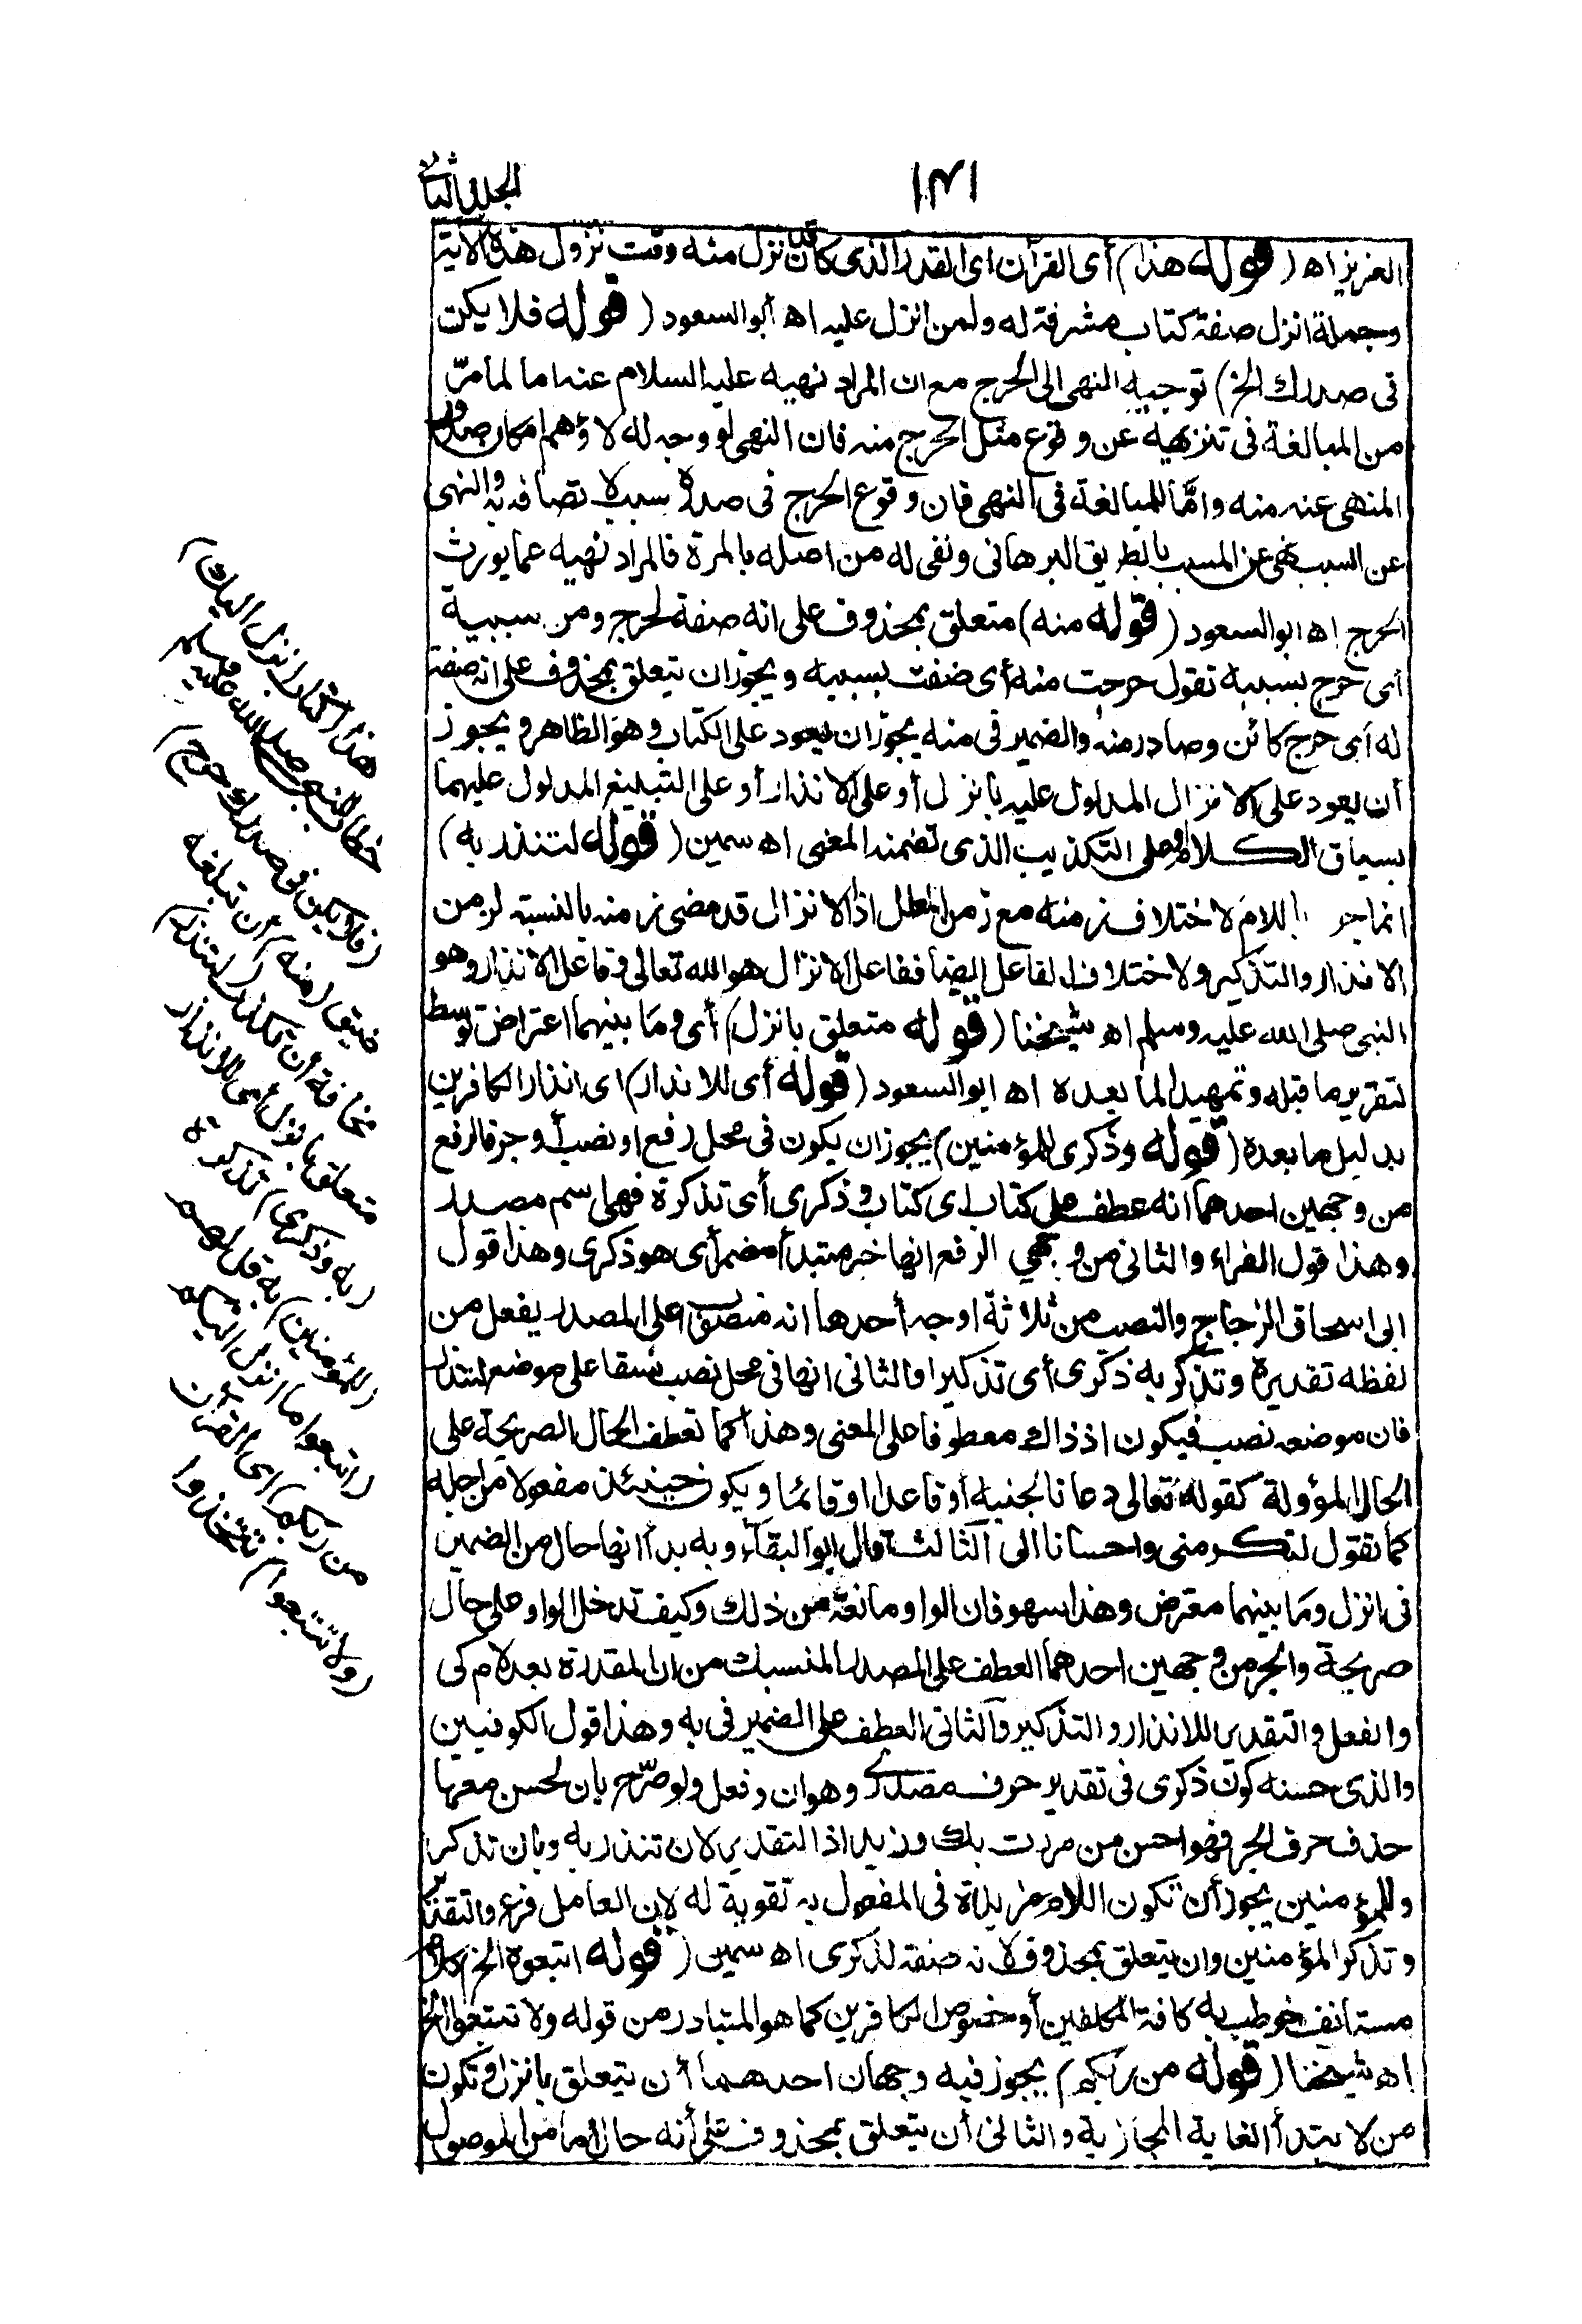 الجلد الثانى
العزيز اه (قوله هذا) أى القرآن اى القدر الذى كان قد نزل منه وقت نزول هذه الآية
وجملة انزل صفة كتاب مشرفة له ولمن انزل عليه اه ابو السعود (قوله فلا يكن
فى صدرك الخ) توجيه النهى الى الحرج مع ان المراد نهيه عليه السلام عنه اما لما مرّ
من المبالغة فى تنزيهه عن وقوع مثل الحرج منه فان النهى لو وجه له لاوهم امكان صدور
المنهى عنه منه وامّا للمبالغة فى النهى فان وقوع الحرج فى صدره سبب لاتصافه به والنهى
عن السبب نهى عن المسبب بالطريق البرهانى ونفى له من اصله بالمرة فالمراد نهيه عما يورث
الحرج اه ابو السعود (قوله منه) متعلق بمحذوف على انه صفة لحرج ومن سببية
أى حرج بسببه تقول حرجت منه أى ضقت بسببه ويجوز ان يتعلق بمحذوف على انه صفة
له أى حرج كائن وصادر منه والضمير فى منه يجوز ان يعود على الكتاب وهو الظاهر ويجوز
أن يعود على الانزال المدلول عليه بانزل أو على الانذار أو على التبليغ المدلول عليهما
بسياق الكلام أو على التكذيب الذى تضمنه المعنى اه سمين (قوله لتنذر به)
انما جر باللام لاختلاف زمنه مع زمن المعلل اذ الانزال قد مضى زمنه بالنسبة لزمن
الانذار والتذكير ولاختلاف الفاعل ايضا ففاعل الانزال هو الله تعالى وفاعل الانذار هو
النبى صلى الله عليه وسلم اه شيخنا (قوله متعلق بانزل) أى وما بينهما اعتراض توسط
لتقرير ما قبله وتمهيدا لما بعده اه ابو السعود (قوله أى للانذار) اى انذار الكافرين
بدليل ما بعده (قوله وذكرى للمؤمنين) يجوز ان يكون فى محل رفع او نصب أو جر فالرفع
من وجهين احدهما انه عطف على كتاب اى كتاب وذكرى أى تذكرة فهى اسم مصدر
وهذا قول الفراء والثانى من وجهى الرفع انها خبر مبتدأ مضمر أى هو ذكرى وهذا قول
ابى اسحاق الزجاج والنصب من ثلاثة اوجه أحدها انه منصوب على المصدر بفعل من
لفظه تقديره وتذكر به ذكرى أى تذكيرا والثانى انها فى محل نصب نسقا على موضع لتنذر
فان موضعه نصب فيكون اذ ذاك معطوفا على المعنى وهذا كما تعطف الحال الصريحة على
الحال المؤولة كقوله تعالى دعانا لجنبه أو قاعدا او قائما ويكون حينئذ مفعولا من اجله
كما تقول لتكرمنى واحسانا الى الثالث قال ابو البقاء وبه بدأ انها حال من الضمير
فى انزل وما بينهما معترض وهذا سهو فان الواو مانعة من ذلك وكيف تدخل الواو على حال
صريحة والجر من وجهين احدهما العطف على المصدر المنسبك من ان المقدرة بعد لام كى
والفعل والتقدير للانذار والتذكير والثانى العطف على الضمير فى به وهذا قول الكوفيين
والذى حسنه كون ذكرى فى تقدير حرف مصدرى وهو ان وفعل ولو صرّح بان لحسن معها
حذف حرف الجر فهو احسن من مررت بك وزيد اذ التقدير لان تنذر به وبان تذكر
وللمؤمنين يجوز أن تكون اللام مزيدة فى المفعول به تقوية له لان العامل فرع والتقدير
وتذكر المؤمنين وان يتعلق بمحذوف لانه صفة لذكرى اه سمين (قوله اتبعوه الخ) كلام
مستانف خوطب به كافة المكلفين أو خصوص الكافرين كما هو المتبادر من قوله ولا تتبعوا الخ
اه شيخنا (قوله من ربكم) يجوز فيه وجهان احدهما أن يتعلق بانزل وتكون
من لابتدأ الغاية المجازية والثانى أن يتعلق بمحذوف على أنه حال اما من الموصول
هذا (كتاب انزل اليك)
خطاب للنبى صلى الله عليه وسلم
(فلا يكن فى صدرك حرج)
ضيق (منه) أن تبلغه
مخافة أن تكذب (لتنذر)
متعلق بانزل أى للانذار
(به وذكرى) تذكرة
(للمؤمنين) به قل لهم
(اتبعوا ما انزل اليكم
من ربكم) اى القرآن
(ولا تتبعوا) تتخذوا